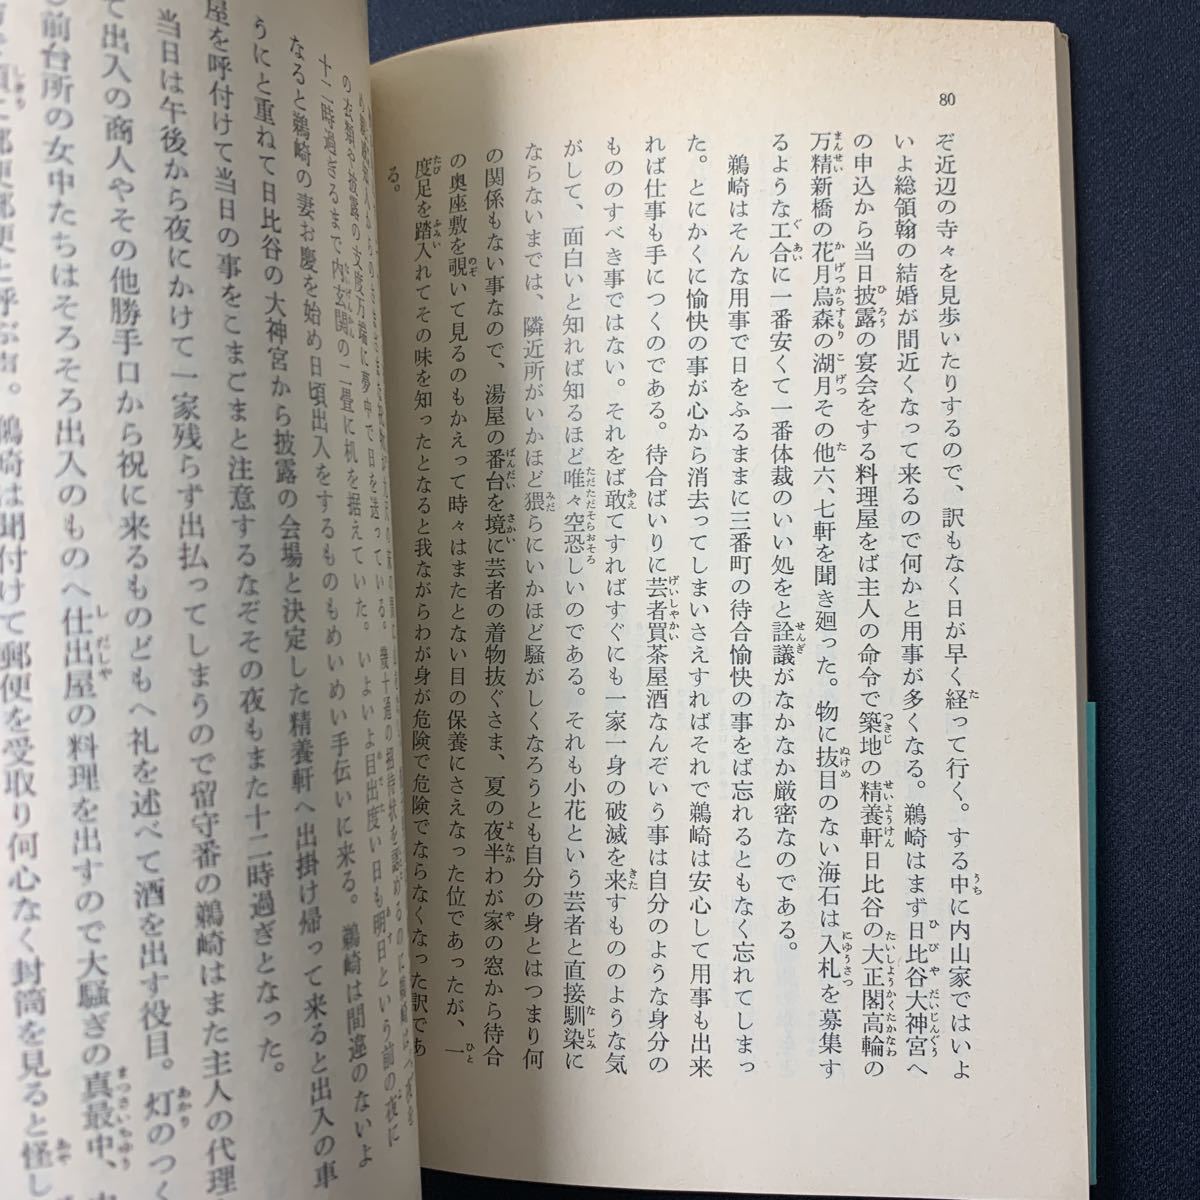 80
ぞ近辺の寺々を見歩いたりするので、訳もなく日が早く経って行く。する中に内山家ではいよ
いよ総領翰の結婚が間近くなって来るので何かと用事が多くなる。鵜崎はまず日比谷大神宮へ
の申込から当日披露の宴会をする料理屋をば主人の命令で築地の精養軒日比谷の大正閣高輪の
万精新橋の花月烏森の湖月その他六、七軒を聞き廻った。物に抜目のない海石は入札を募集す
るような工合に一番安くて一番体裁のいい処をと詮議がなかなか厳密なのである。
鵜崎はそんな用事で日をふるままに三番町の待合愉快の事をば忘れるともなく忘れてしまっ
た。とにかくに愉快の事が心から消去ってしまいさえすればそれで鵜崎は安心して用事も出来
れば仕事も手につくのである。待合ばいりに芸者買茶屋酒なんぞいう事は自分のような身分の
もののすべき事ではない。それをば敢てすればすぐにも一家一身の破滅を来すもののような気
がして、面白いと知れば知るほど唯々空恐しいのである。それも小花という芸者と直接馴染に
ならないまでは、隣近所がいかほど猥らにいかほど騒がしくなろうとも自分の身とはつまり何
の関係もない事なので、湯屋の番台を境に芸者の着物抜ぐさま、夏の夜半わが家の窓から待合
の奥座敷を覗いて見るのもかえって時々はまたとない目の保養にさえなった位であったが、一
度足を踏入れてその味を知ったとなると我ながらわが身が危険で危険でならなくなった訳であ
る。
の衣類や披露の支度万端に夢中で日を送っている。幾十通の招待状を認めるのに鵜崎は
十二時過ぎるまで内玄関の二畳に机を据えていた。いよいよ目出度い日も明日という前の夜に
なると鵜崎の妻お慶を始め日頃出入をするものもめいめい手伝いに来る。鵜崎は間違のないよ
うにと重ねて日比谷の大神宮から披露の会場と決定した精養軒へ出掛け帰って来ると出入の車
屋を呼付けて当日の事をこまごまと注意するなぞその夜もまた十二時過ぎとなった。
当日は午後から夜にかけて一家残らず出払ってしまうので留守番の鵜崎はまた主人の代理
て出入の商人やその他勝手口から祝に来るものどもへ礼を述べて酒を出す役目。灯のつく
前台所の女中たちはそろそろ出入のものへ仕出屋の料理を出すので大騒ぎの真最中、
郵便郵便と呼ぶ声。鵜崎は聞付けて郵便を受取り何心なく封筒を見ると怪し